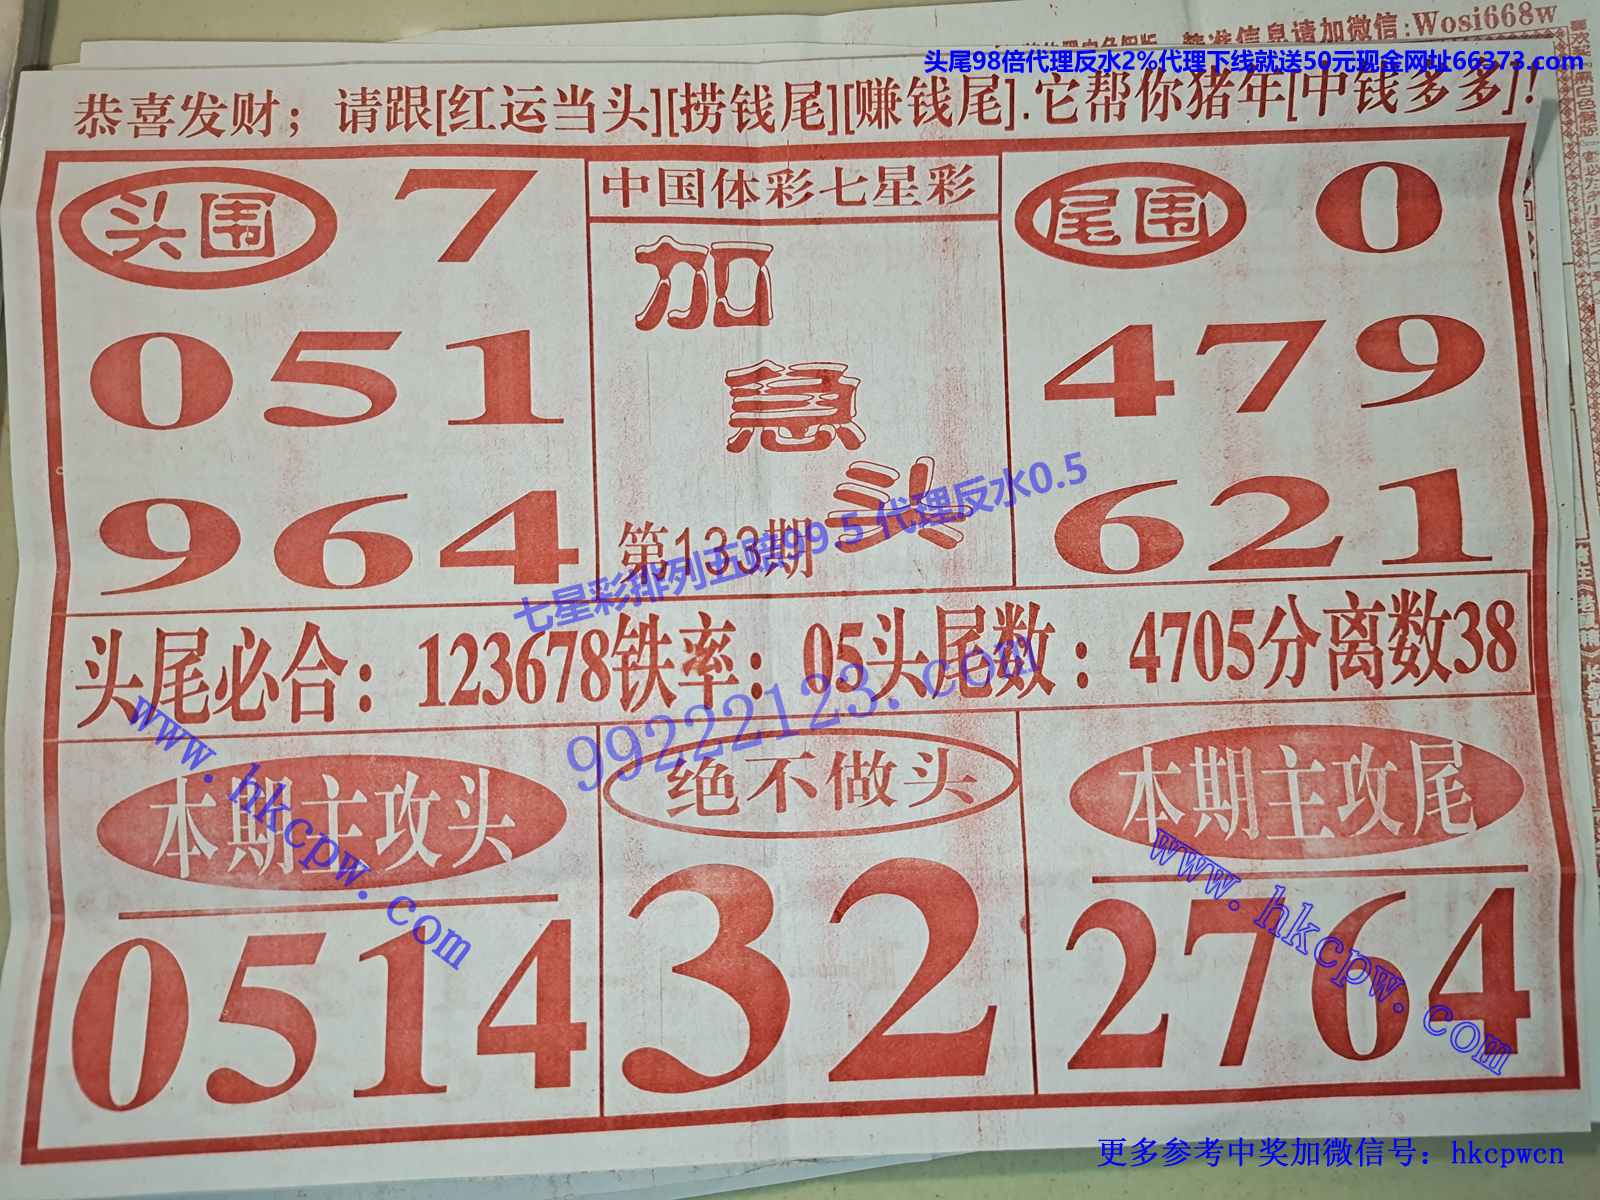 精准信息请加微信:Wosi668w
头尾98倍代理反水2%代理下线就送50元现金网址66373.com
恭喜发财；请跟[红运当头][捞钱尾][赚钱尾].它帮你猪年[中钱多多]!
头围 7
051
964
中国体彩七星彩
加
急
头
第133期
尾围 0
479
621
七星彩排列五赔99.5 代理反水0.5
头尾必合：123678铁率：05头尾数：4705分离数38
99222123.com
www.hkcpw.com
本期主攻头
0514
绝不做头
32
本期主攻尾
www.hkcpw.com
2764
更多参考中奖加微信号：hkcpwcn